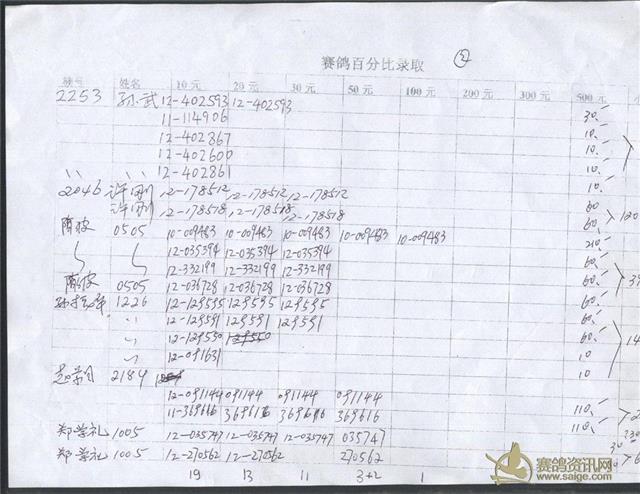 赛鸽百分比录取 ②
棚号 姓名 10元 20元 30元 50元 100元 200元 300元 500元
2253 孙武 12-402593 12-402593 30.
11-114906 10.
12-402867 10.
12-402600 10.
〃 〃 12-402861 10.
2046 许刚 12-178512 12-178512 12-178512 60
许刚 12-178518 12-178518 12-178518 60.
0505 10-009483 10-009483 10-009483 10-009483 10-009483 210.
12-035394 12-035394 12-035394 60.
12-332199 12-332199 12-332199 60.
0505 12-036728 12-036728 12-036728 60.
1226 12-129595 129595 129595 60.
〃 12-129591 129591 129591 60.
〃 12-129550 10
〃 12-091631 10
2184
12-091144 091144 091144 091144 110.
11-369616 369616 369616 369616 110.
郑学礼 1005 12-035747 12-035747 12-035747 035747
郑学礼 1005 12-270562 12-270562 270562
19 13 11 3+2 1
赛鸽资讯网
www.saige.com